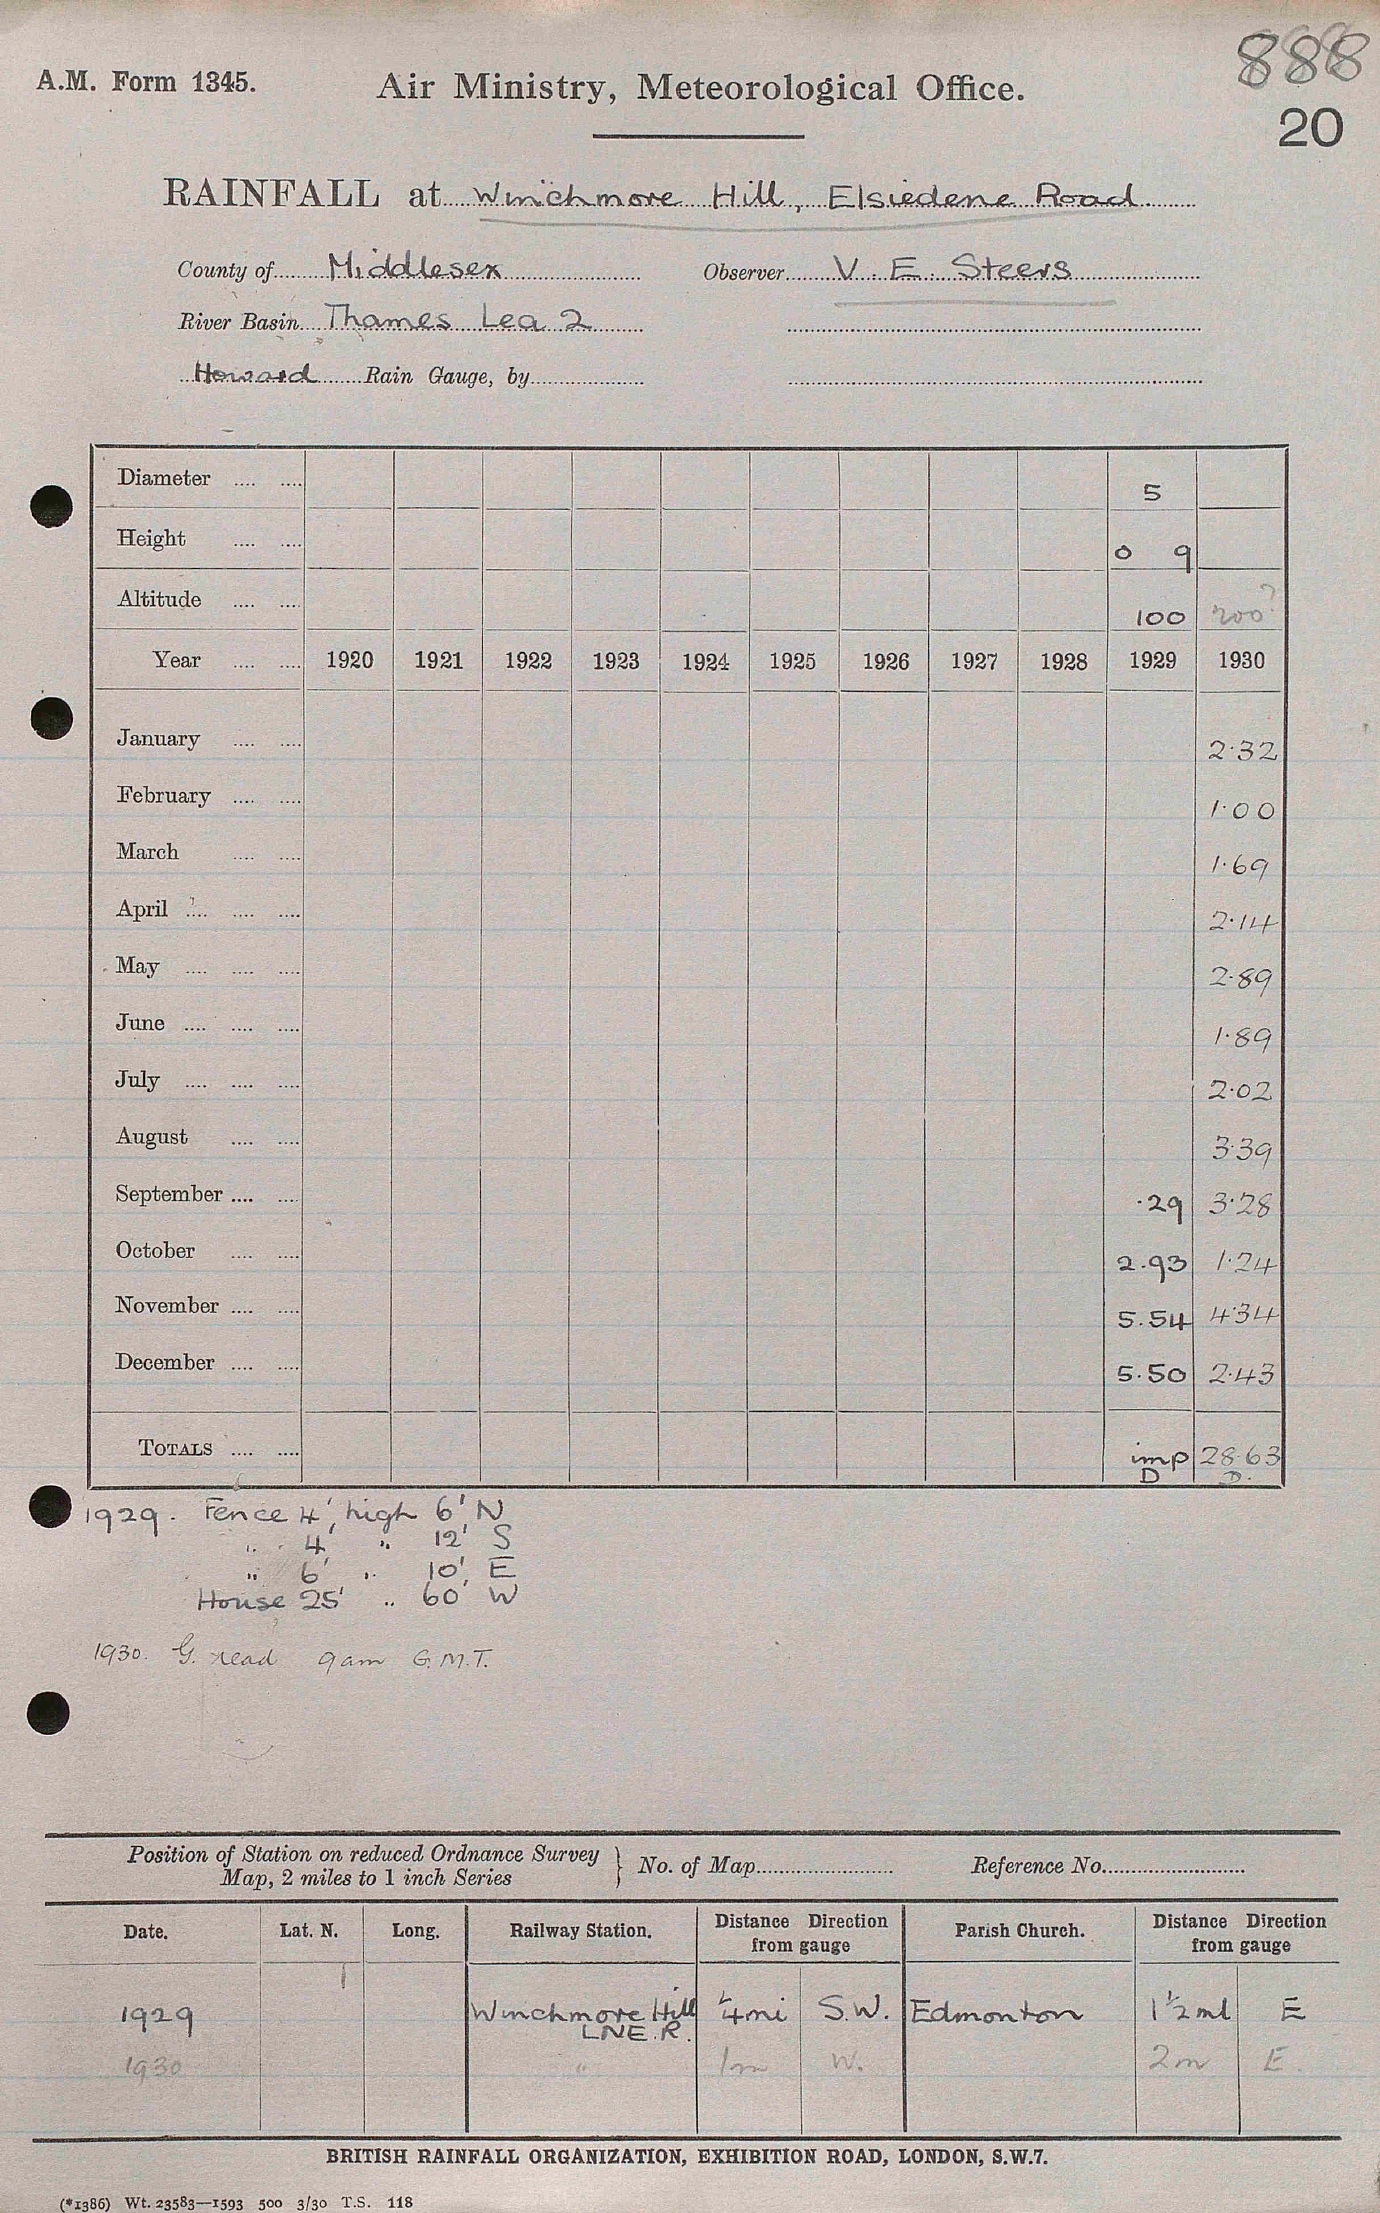 888
A.M. Form 1345. Air Ministry, Meteorological Office.
20
RAINFALL at Winchmore Hill, Elsiedene Road
County of Middlesex Observer V. E. Steers
River Basin Thames Lea 2
Howard Rain Gauge, by
Diameter .... .... 5
Height .... .... 0 9
Altitude .... .... 100 200?
Year .... .... 1920 1921 1922 1923 1924 1925 1926 1927 1928 1929 1930
January .... .... 2.32
February .... .... 1.00
March .... .... 1.69
April .... .... .... 2.14
May .... .... .... 2.89
June .... .... .... 1.89
July .... .... .... 2.02
August .... .... 3.39
September .... .... .29 3.28
October .... .... 2.93 1.24
November .... .... 5.54 4.34
December .... .... 5.50 2.43
TOTALS .... .... imp 28.63
D D.
1929. Fence 4', high 6' N
" 4' " 12' S
" 6' " 10' E
House 25' " 60' W
1930. G. read 9am G.M.T.
Position of Station on reduced Ordnance Survey
Map, 2 miles to 1 inch Series } No. of Map Reference No.
Date. Lat. N. Long. Railway Station. Distance Direction from gauge Parish Church. Distance Direction from gauge
1929 Winchmore Hill 1/4 mi S.W. Edmonton 1 1/2 ml E
L.N.E.R.
1930 " 1m W. 2m E.
BRITISH RAINFALL ORGANIZATION, EXHIBITION ROAD, LONDON, S.W.7.
(*1386) Wt. 23583—1593 500 3/30 T.S. 118